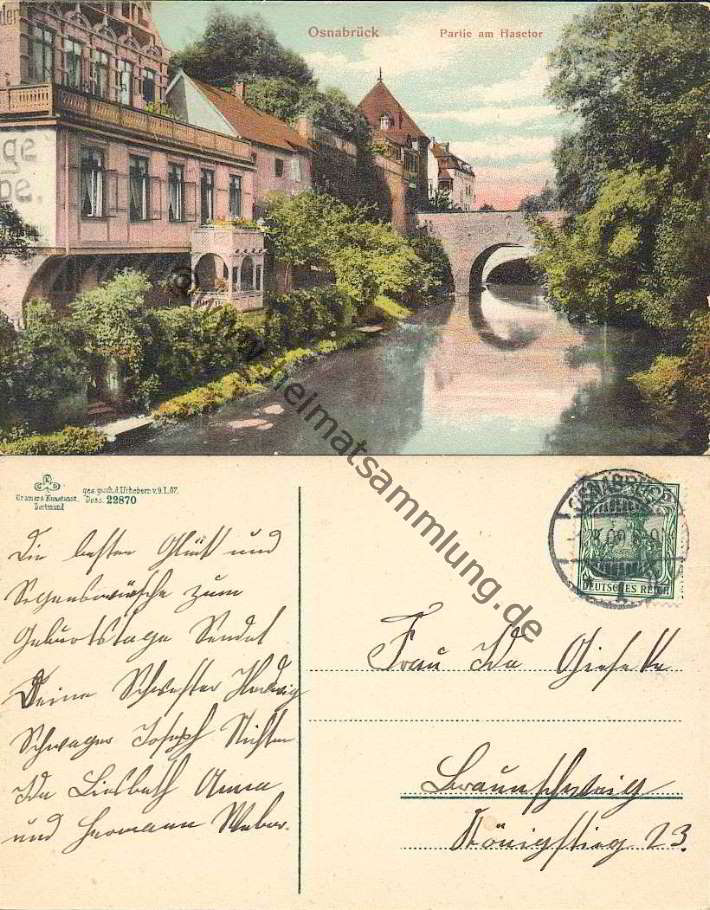 Osnabrück Partie am Hasetor
ge
www.heimatsammlung.de
ges. gesch. d. Urhebern v. 9.1.07.
Cramers Kunstanst. Dess. 22870
Dortmund
OSNABRÜCK
DEUTSCHES REICH
Die besten Glück und
Segenswünsche zum
Geburtstage Sendet
Deine Schwester Hedwig
Schwager Joseph Nichten
Ida Liesbeth Anna
und Hermann Weber.
Frau Ida Gieseke
Braunschweig
Königstieg 23.